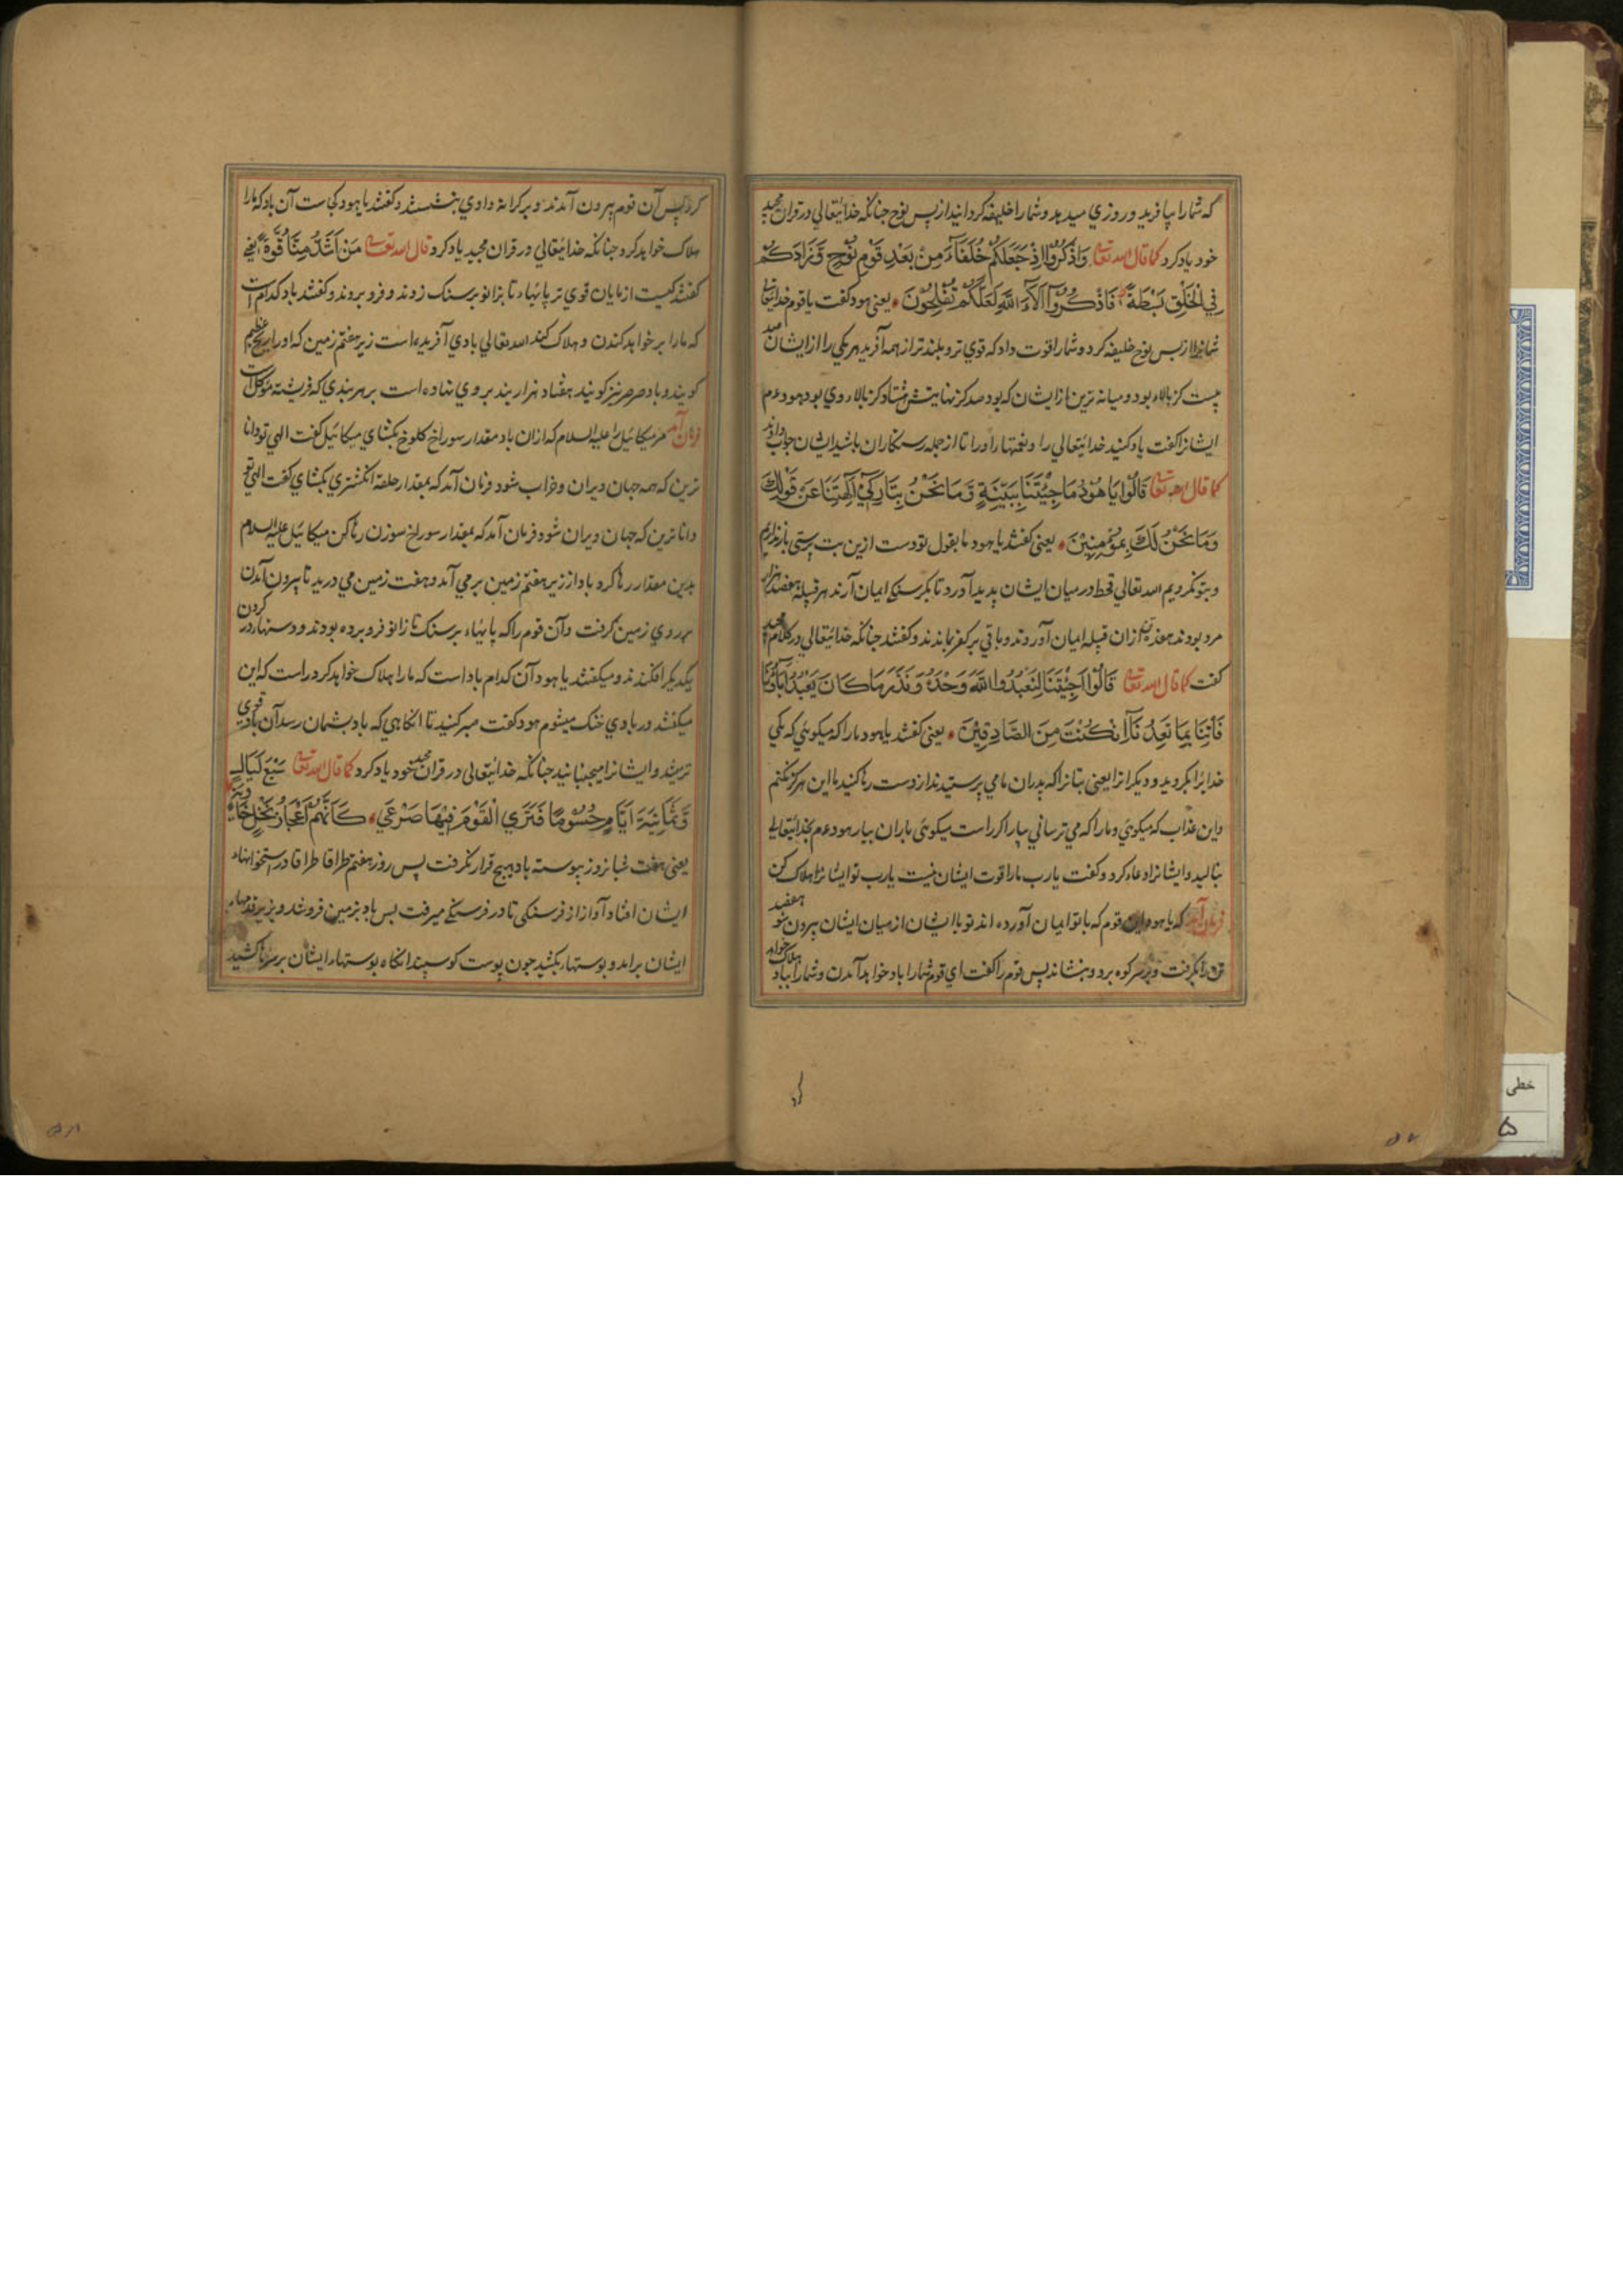 که شمارا بیافرید و روزي میدهد و شمارا خلیفه کردانید از پس نوح چنانکه خدایتعالي در قران مجید
خود یاد کرد کما قال الله تعالی وَاذْكُرُوا اِذْ جَعَلَكُمْ خُلَفَآءَ مِنْ بَعْدِ قَوْمِ نُوْحٍ وَّزَادَكُمْ
فِي الْخَلْقِ بَسْطَةً فَاذْكُرُوْآ اٰلَآءَ اللّٰهِ لَعَلَّكُمْ تُفْلِحُوْنَ یعنی هود کفت یا قوم خدایتعالی
شمانرا از پس نوح خلیفه کرد و شمارا قوت داد که قوي تر و بلند تر از همه آفرید هر یکي را از ایشان
بیست کز بالاء بود و میانه ترین از ایشان که بود صد کز نهایتش هشتاد کز بالاء وي بود هود عم
ایشانرا کفت یاد کنید خدایتعالي را و نعمتهاء اورا تا از جمله رستکاران باشید ایشان جواب دادند
کما قال الله تعالی قَالُوْا يَا هُوْدُ مَا جِئْتَنَا بِبَيِّنَةٍ وَّمَا نَحْنُ بِتَارِكِيْ اٰلِهَتِنَا عَنْ قَوْلِكَ
وَمَا نَحْنُ لَكَ بِمُؤْمِنِيْنَ یعنی کفتند یا هود ما بقول تو دست ازین بت پرستی باز نداریم
و بتو نکرویم الله تعالي قحط در میان ایشان پدید آورد تا بکرسنکي ایمان آرند هر قبیله هفصد هزار
مرد بودند هفده از ان قبیله ایمان آوردند و باقي بر کفر بماندند و کفتند چنانکه خدایتعالي در کلام مجید
کفت کما قال الله تعالی قَالُوْا اَجِئْتَنَا لِنَعْبُدَ اللّٰهَ وَحْدَهٗ وَنَذَرَ مَا كَانَ يَعْبُدُ اٰبَآؤُنَا
فَأْتِنَا بِمَا تَعِدُنَآ اِنْ كُنْتَ مِنَ الصَّادِقِيْنَ یعنی کفتند یا هود مارا که میکوئي که یکي
خدایرا بکروید و دیکرانرا یعنی بتانرا که پدران ما می پرستیدند از دست رها کنید ما این هرکز نکنیم
و این عذاب که میکوئي و مارا که می ترسانی بیار اکر راست میکوئی باران بیار هود عم بخدایتعالی
بنالید و ایشانرا دعاء کرد و کفت یارب مارا قوت ایشان نیست یارب تو ایشانرا هلاک کن
فرمان آمد که یا هود این قوم که با تو ایمان آورده اند تو با ایشان از میان ایشان بیرون شو هفصد
تن را بکرفت و بر سر کوه برد و بنشاند پس قوم را کفت اي قوم شمارا باد خواهد آمدن و شمارا بباد هلاک خواهد
کرد پس آن قوم بیرون آمدند و بر کرانه وادي بنشستند و کفتند یا هود کجاست آن باد که مارا
هلاک خواهد کرد چنانکه خدایتعالي در قران مجید یاد کرد قال الله تعالی مَنْ اَشَدُّ مِنَّا قُوَّةً یعني
کفتند کیست از مایان قوي تر پائهاء تا بزانو بر سنک زدند و فرو بردند و کفتند باد کدام است
که مارا بر خواهد کندن و هلاک کند الله تعالي بادي آفریده است زیر هفتم زمین که اورا ریح عظیم
کویند و باد صرصر نیز کویند هفتاد هزار بند بر وي نهاده است بر هر بندي که فرشته موکل است
فرمان آمد مر میکائیل را علیه السلام که ازان باد مقدار سوراخ کلوخ بکشاي میکائیل کفت الهي تو دانا
ترین که همه جهان ویران و خراب شود فرمان آمد که بمقدار حلقه انکشتري بکشاي کفت الهي تو
دانا ترین که جهان ویران شود فرمان آمد که بمقدار سوراخ سوزن رها کن میکائیل علیه السلام
بدین مقدار رها کرد باد از زیر هفتم زمین برمي آمد و هفت زمین مي درید تا بیرون آمدن
بر روي زمین کرفت و آن قوم را که پایهاء بر سنک تا زانو فرو برده بودند و دستها در کردن
یکدیکر افکندند و میکفتند یا هود آن کدام باد است که مارا هلاک خواهد کرد راست که این
میکفتند و ربادي خنک میشوم هود کفت صبر کنید تا انکاهي که باد بشمان رسد آن باد قوي
ترمیشد و ایشانرا میجنبانید چنانکه خدایتعالی در قران مجید خود یاد کرد کما قال الله تعالی سَبْعَ لَيَالٍ
وَّثَمَانِيَةَ اَيَّامٍ حُسُوْمًا فَتَرَي الْقَوْمَ فِيْهَا صَرْعَي كَاَنَّهُمْ اَعْجَازُ نَخْلٍ خَاوِيَةٍ
یعنی هفت شبانروز پیوسته باد هیچ قرار نکرفت پس روز هفتم طراقا طراقا در استخوانهاء
ایشان افتاد آواز از فرسنکی تا در فرسنکے میرفت پس باد بزمین فروشد و بزیر قدمهاء
ایشان برامد و پوستهاء بکشید چون پوست کوسپند انکاه پوستهاء ایشان بر سرها کشید
خطی
۵
۵۷